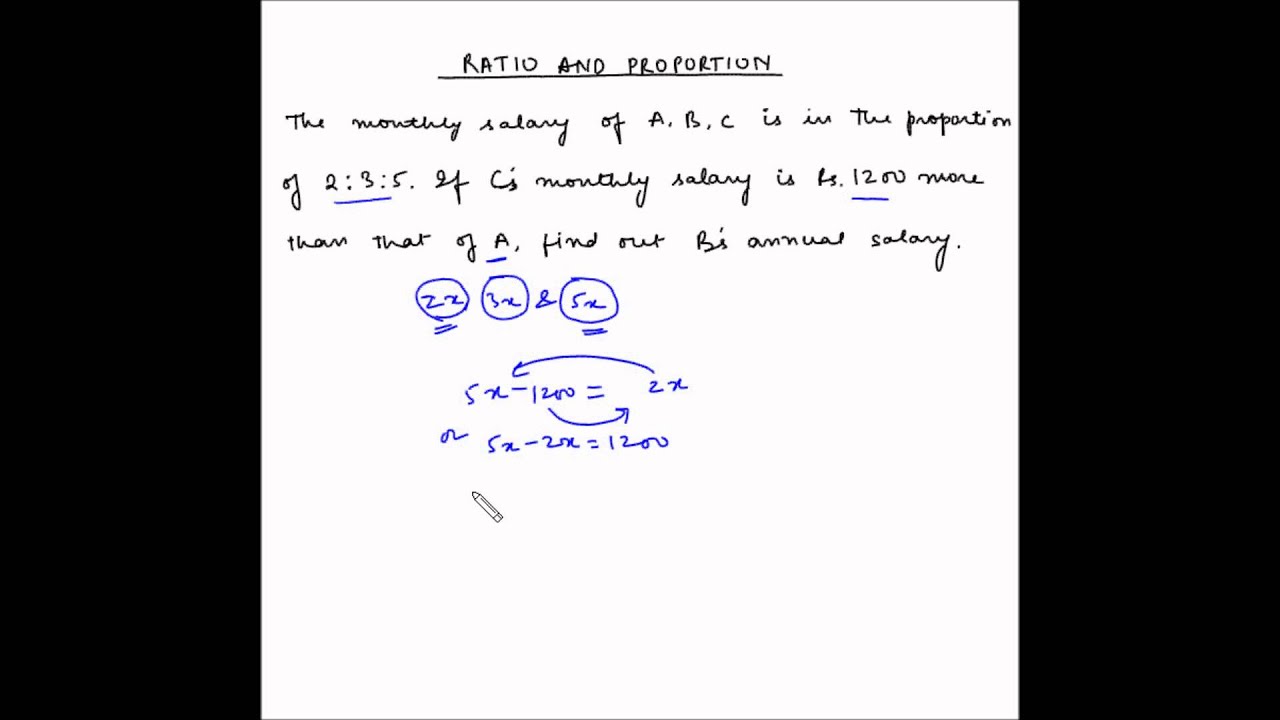 RATIO AND PROPORTION
The monthly salary of A, B, C is in the proportion
of 2:3:5. If C's monthly salary is Rs. 1200 more
than that of A, find out B's annual salary.
2x 3x & 5x
5x-1200 = 2x
or 5x-2x=1200